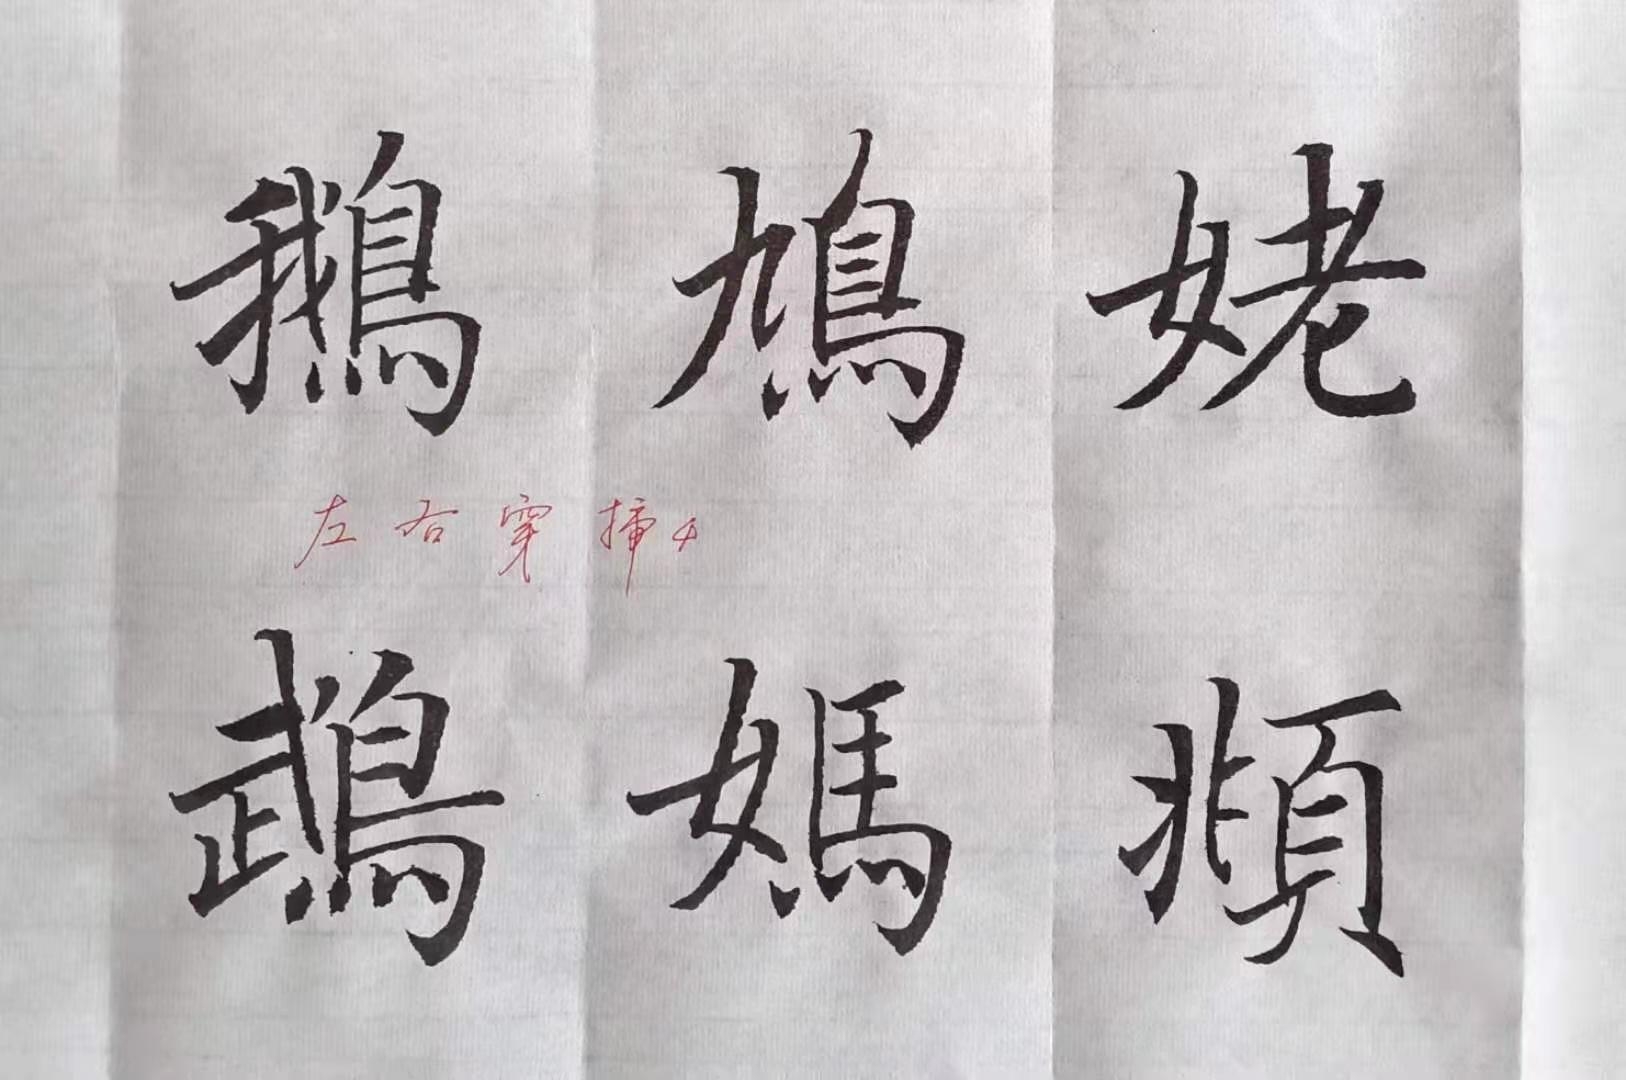 鵝 鳩 姥
左右穿插4
鵡 媽 頫